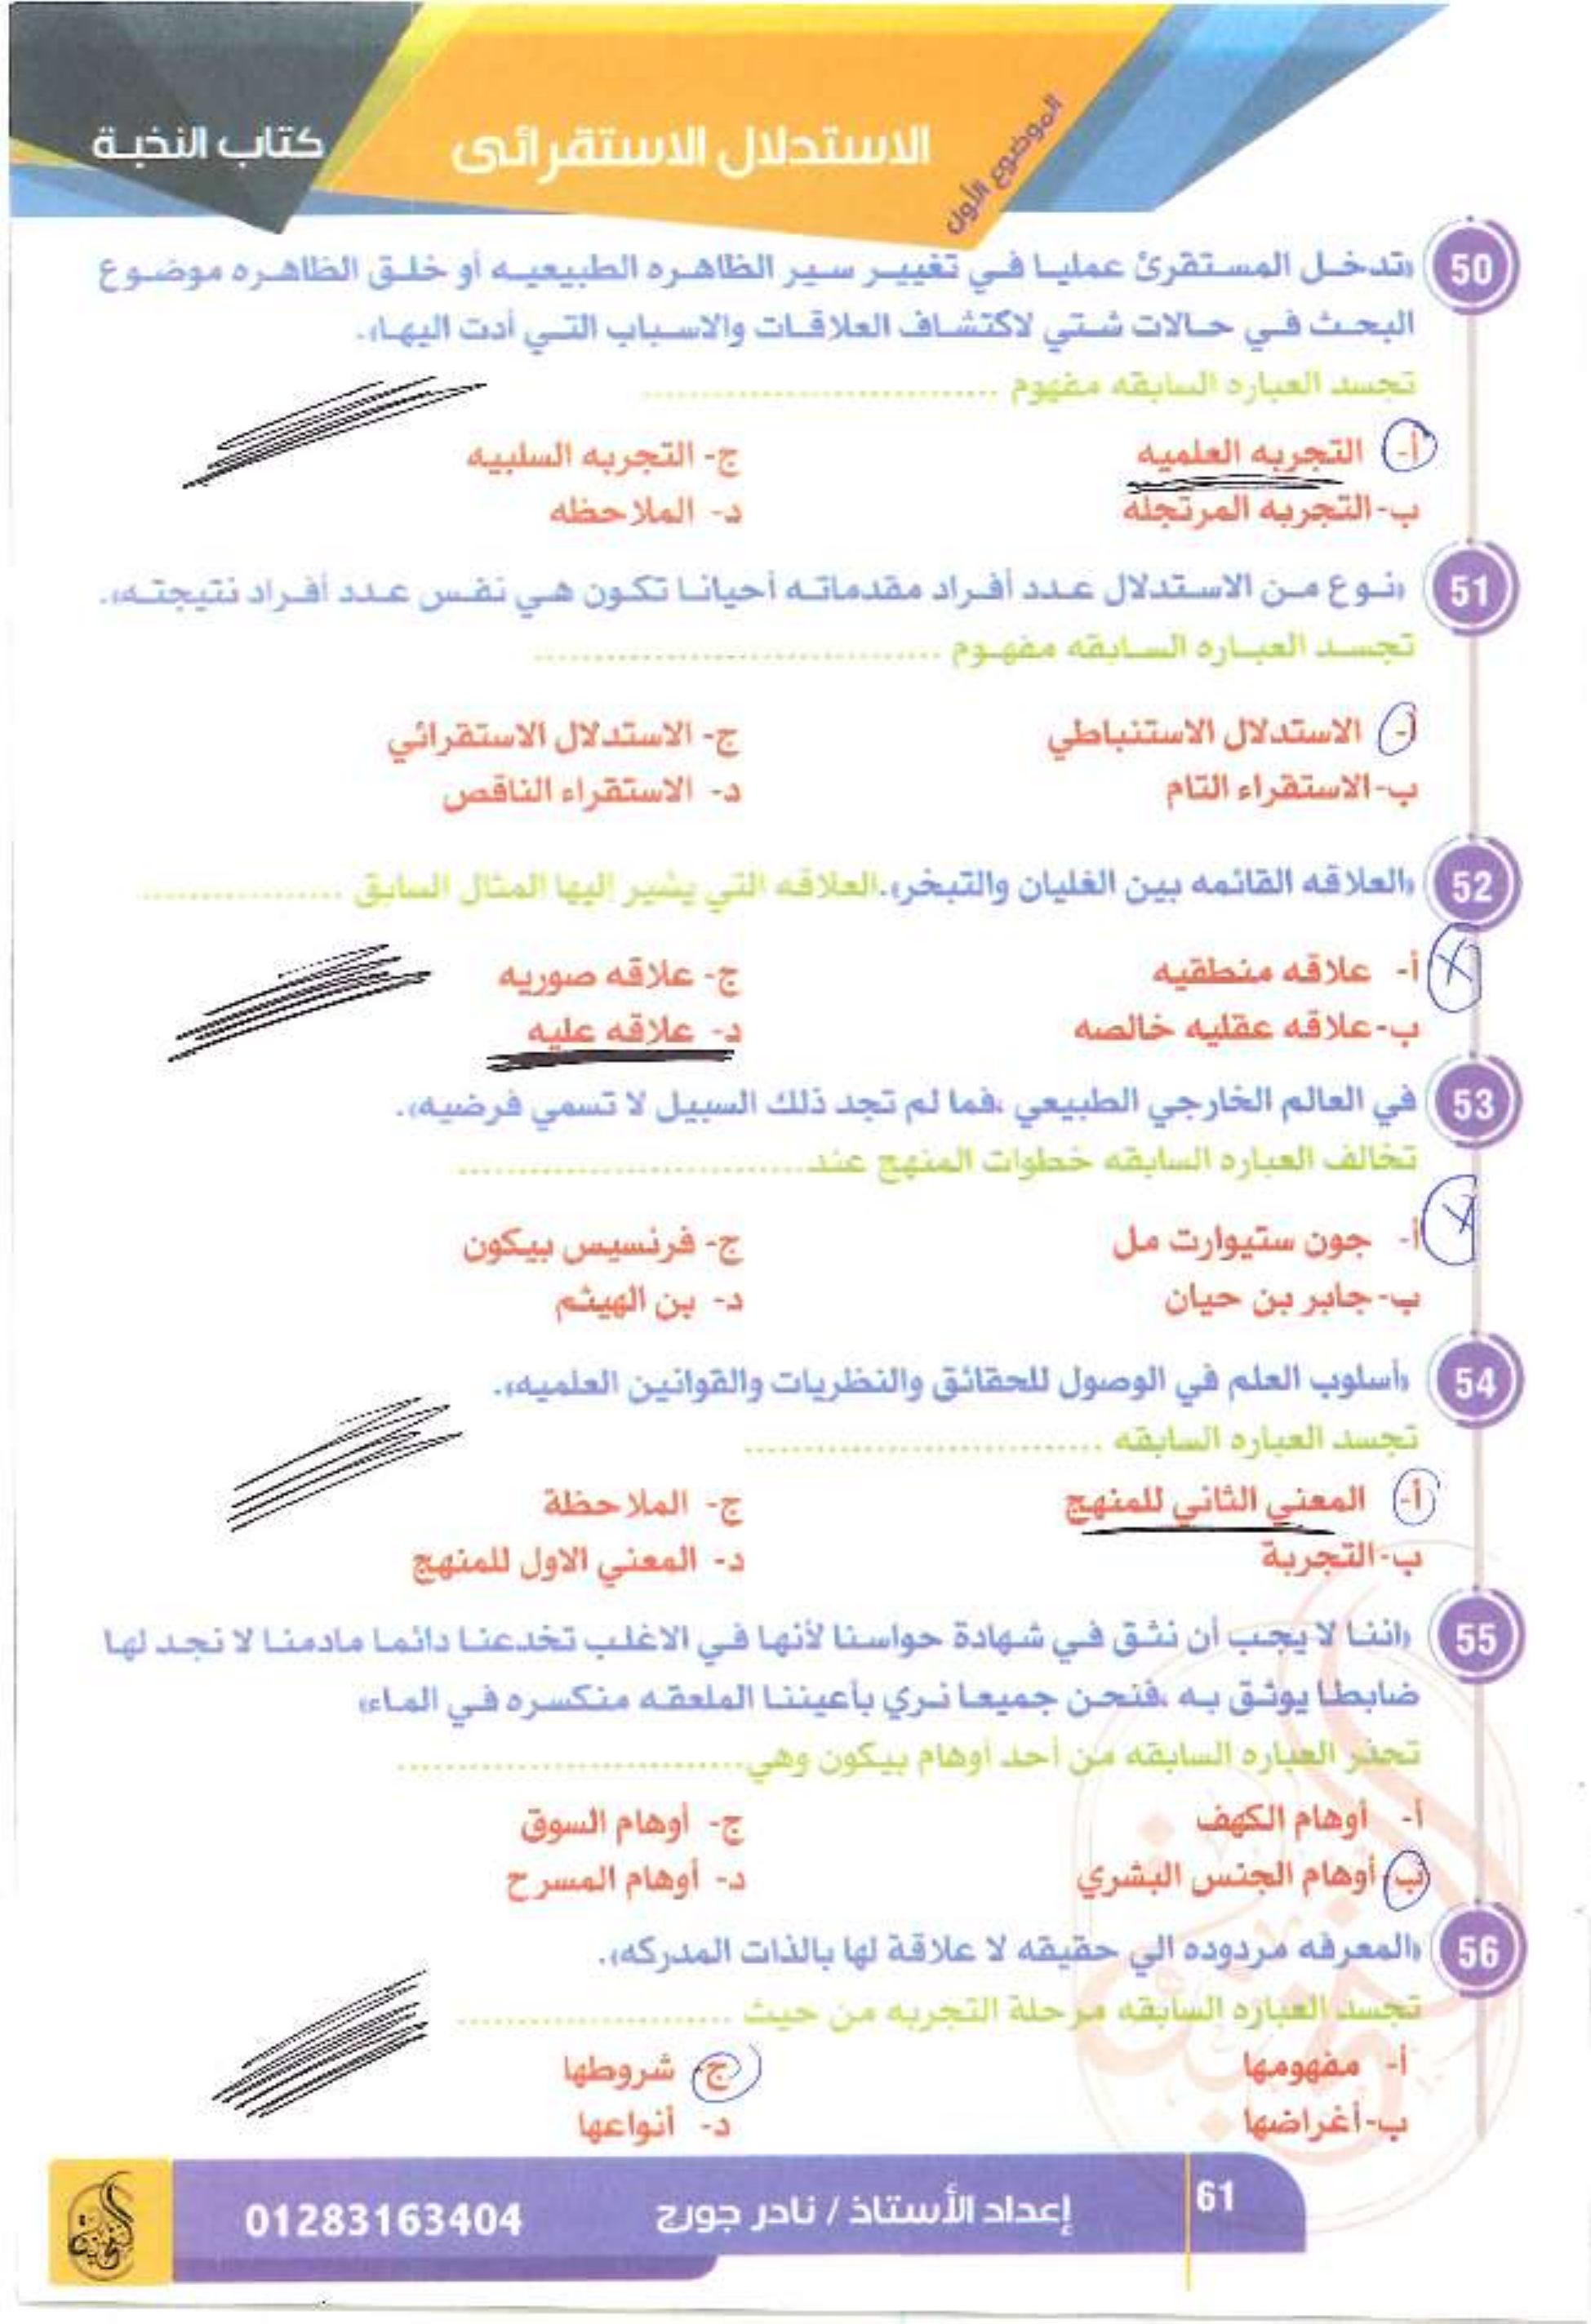 كتاب النخبة
الاستدلال الاستقرائى
الموضوع الأول
50 «تدخل المستقرئ عمليا في تغيير سير الظاهره الطبيعيه أو خلق الظاهره موضوع
البحث في حالات شتي لاكتشاف العلاقات والاسباب التي أدت اليها».
تجسد العباره السابقه مفهوم ..............................
أ- التجربه العلميه
ج- التجربه السلبيه
ب- التجربه المرتجله
د- الملاحظه
51 «نوع من الاستدلال عدد أفراد مقدماته أحيانا تكون هي نفس عدد أفراد نتيجته».
تجسد العباره السابقه مفهوم ..............................
أ- الاستدلال الاستنباطي
ج- الاستدلال الاستقرائي
ب- الاستقراء التام
د- الاستقراء الناقص
52 «العلاقه القائمه بين الغليان والتبخر».العلاقه التي يشير إليها المثال السابق ..................
أ- علاقه منطقيه
ج- علاقه صوريه
ب- علاقه عقليه خالصه
د- علاقه عليه
53 في العالم الخارجي الطبيعي ،فما لم تجد ذلك السبيل لا تسمي فرضيه».
تخالف العباره السابقه خطوات المنهج عند..............................
أ- جون ستيوارت مل
ج- فرنسيس بيكون
ب- جابر بن حيان
د- بن الهيثم
54 «أسلوب العلم في الوصول للحقائق والنظريات والقوانين العلميه».
تجسد العباره السابقه ..............................
أ- المعني الثاني للمنهج
ج- الملاحظة
ب- التجربة
د- المعني الاول للمنهج
55 «اننا لا يجب أن نثق في شهادة حواسنا لأنها في الاغلب تخدعنا دائما مادمنا لا نجد لها
ضابطا يوثق به ،فنحن جميعا نري بأعيننا الملعقه منكسره في الماء»
تحذر العباره السابقه من أحد أوهام بيكون وهي..............................
أ- أوهام الكهف
ج- أوهام السوق
ب- أوهام الجنس البشري
د- أوهام المسرح
56 «المعرفه مردوده الي حقيقه لا علاقة لها بالذات المدركه».
تجسد العباره السابقه مرحلة التجربه من حيث ........................
أ- مفهومها
ج- شروطها
ب- أغراضها
د- أنواعها
61
إعداد الأستاذ / نادر جورج
01283163404
النخبة